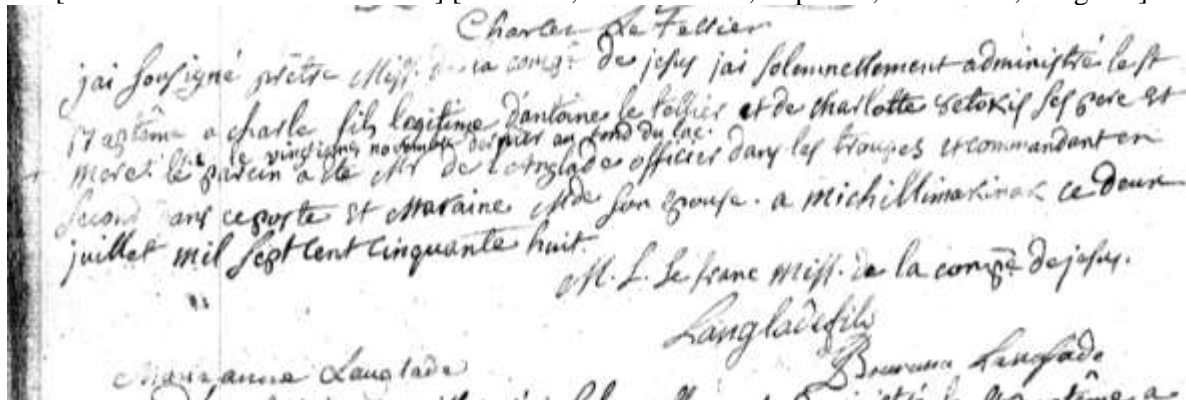 Charles Le Tellier
jai Sousigné prêtre Miss. de la compe. de jesus jai solemnellement administré le st
Baptême a charle fils legitime d'antoine le tellier et de charlotte ses pere et
le vingt cinq novembre dernier au fond du lac.
mere. le parein a été Mr de Langlade officier dans les troupes et commandant en
second dans ce poste et Maraine Mde son epouse. a michillimakinak ce deux
juillet mil sept cent cinquante huit.
M. L. Lefranc miss. de la compe. de jesus.
Langlade fils
Bourassa Langlade
Marianna Langlade